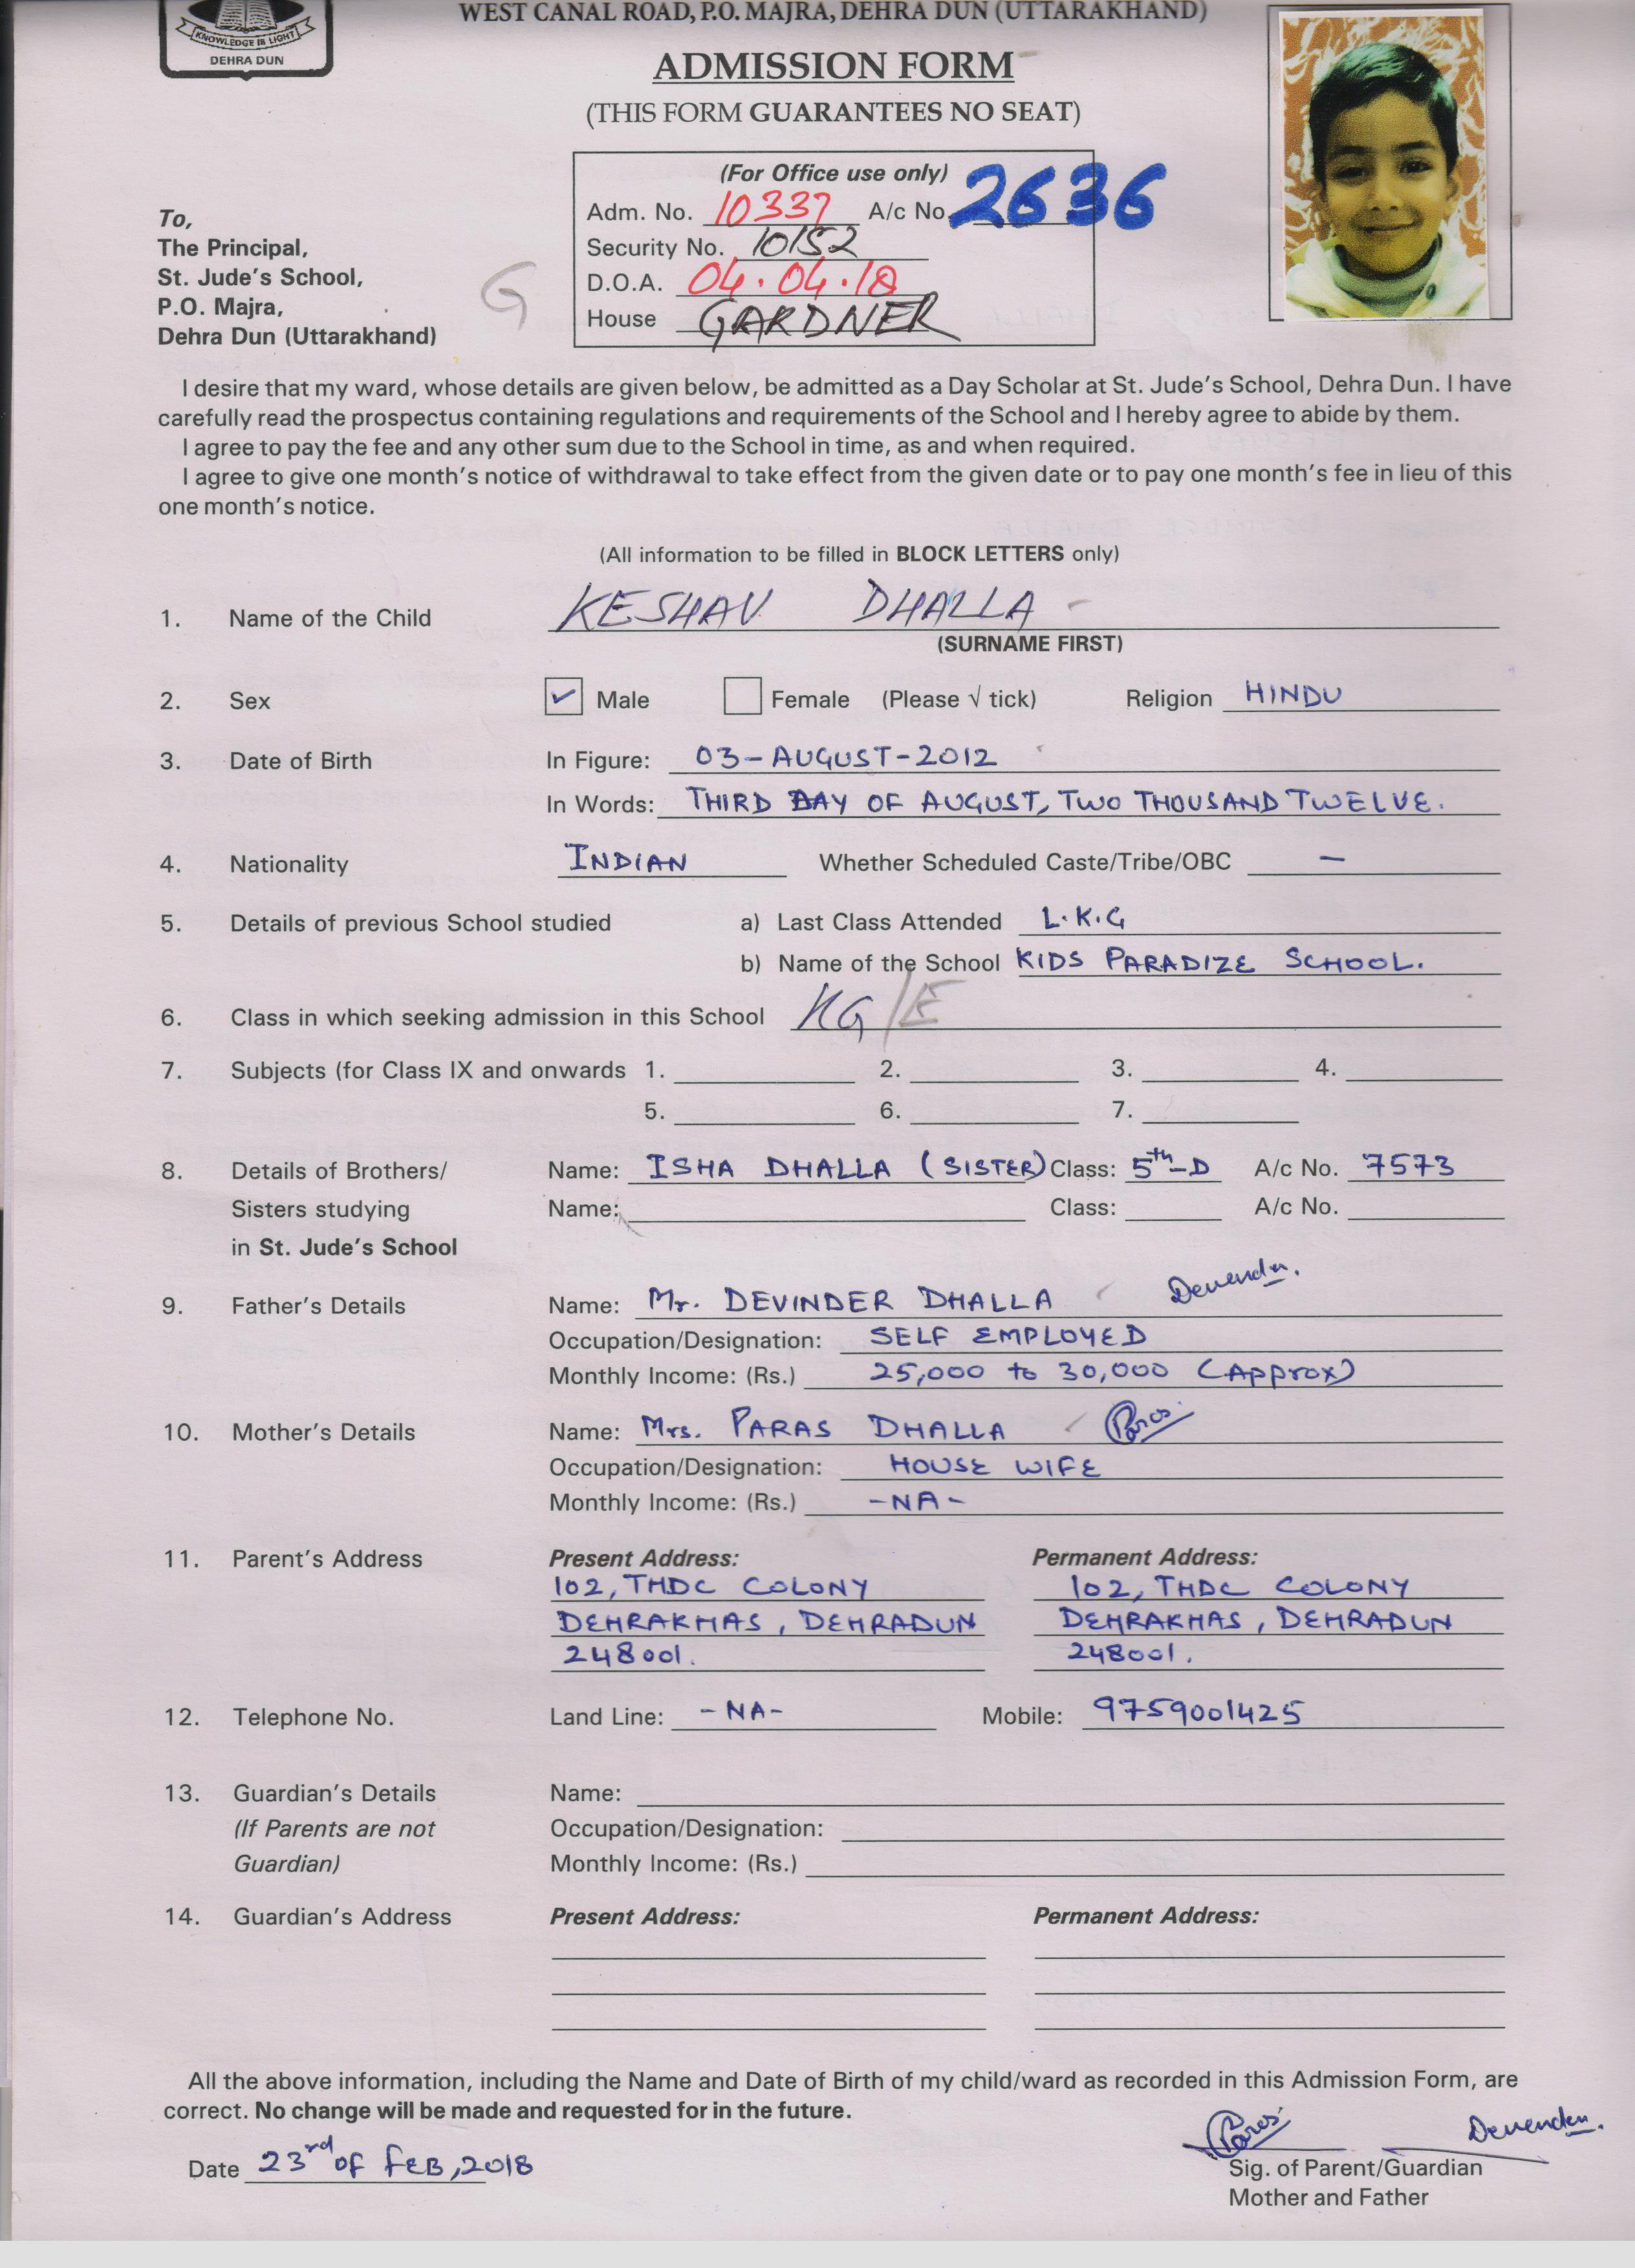 WEST CANAL ROAD, P.O. MAJRA, DEHRA DUN (UTTARAKHAND)
KNOWLEDGE IS LIGHT
DEHRA DUN
ADMISSION FORM
(THIS FORM GUARANTEES NO SEAT)
(For Office use only)
Adm. No. 10337 A/c No. 2636
Security No. 10152
D.O.A. 04.04.18
House GARDNER
To,
The Principal,
St. Jude's School,
P.O. Majra,
Dehra Dun (Uttarakhand)
G
I desire that my ward, whose details are given below, be admitted as a Day Scholar at St. Jude's School, Dehra Dun. I have
carefully read the prospectus containing regulations and requirements of the School and I hereby agree to abide by them.
I agree to pay the fee and any other sum due to the School in time, as and when required.
I agree to give one month's notice of withdrawal to take effect from the given date or to pay one month's fee in lieu of this
one month's notice.
(All information to be filled in BLOCK LETTERS only)
1. Name of the Child KESHAV DHALLA
(SURNAME FIRST)
2. Sex ✓ Male Female (Please √ tick) Religion HINDU
3. Date of Birth In Figure: 03-AUGUST-2012
In Words: THIRD DAY OF AUGUST, TWO THOUSAND TWELVE.
4. Nationality INDIAN Whether Scheduled Caste/Tribe/OBC —
5. Details of previous School studied a) Last Class Attended L.K.G
b) Name of the School KIDS PARADIZE SCHOOL.
6. Class in which seeking admission in this School KG/E
7. Subjects (for Class IX and onwards 1. 2. 3. 4.
5. 6. 7.
8. Details of Brothers/ Name: ISHA DHALLA (SISTER) Class: 5th-D A/c No. 7573
Sisters studying Name: Class: A/c No.
in St. Jude's School
9. Father's Details Name: Mr. DEVINDER DHALLA
Occupation/Designation: SELF EMPLOYED
Monthly Income: (Rs.) 25,000 to 30,000 (Approx)
10. Mother's Details Name: Mrs. PARAS DHALLA Paras
Occupation/Designation: HOUSE WIFE
Monthly Income: (Rs.) -NA-
11. Parent's Address Present Address: Permanent Address:
102, THDC COLONY 102, THDC COLONY
DEHRAKHAS, DEHRADUN DEHRAKHAS, DEHRADUN
248001. 248001.
12. Telephone No. Land Line: -NA- Mobile: 9759001425
13. Guardian's Details Name:
(If Parents are not Occupation/Designation:
Guardian) Monthly Income: (Rs.)
14. Guardian's Address Present Address: Permanent Address:
All the above information, including the Name and Date of Birth of my child/ward as recorded in this Admission Form, are
correct. No change will be made and requested for in the future.
Paras
Date 23rd of FEB, 2018
Sig. of Parent/Guardian
Mother and Father